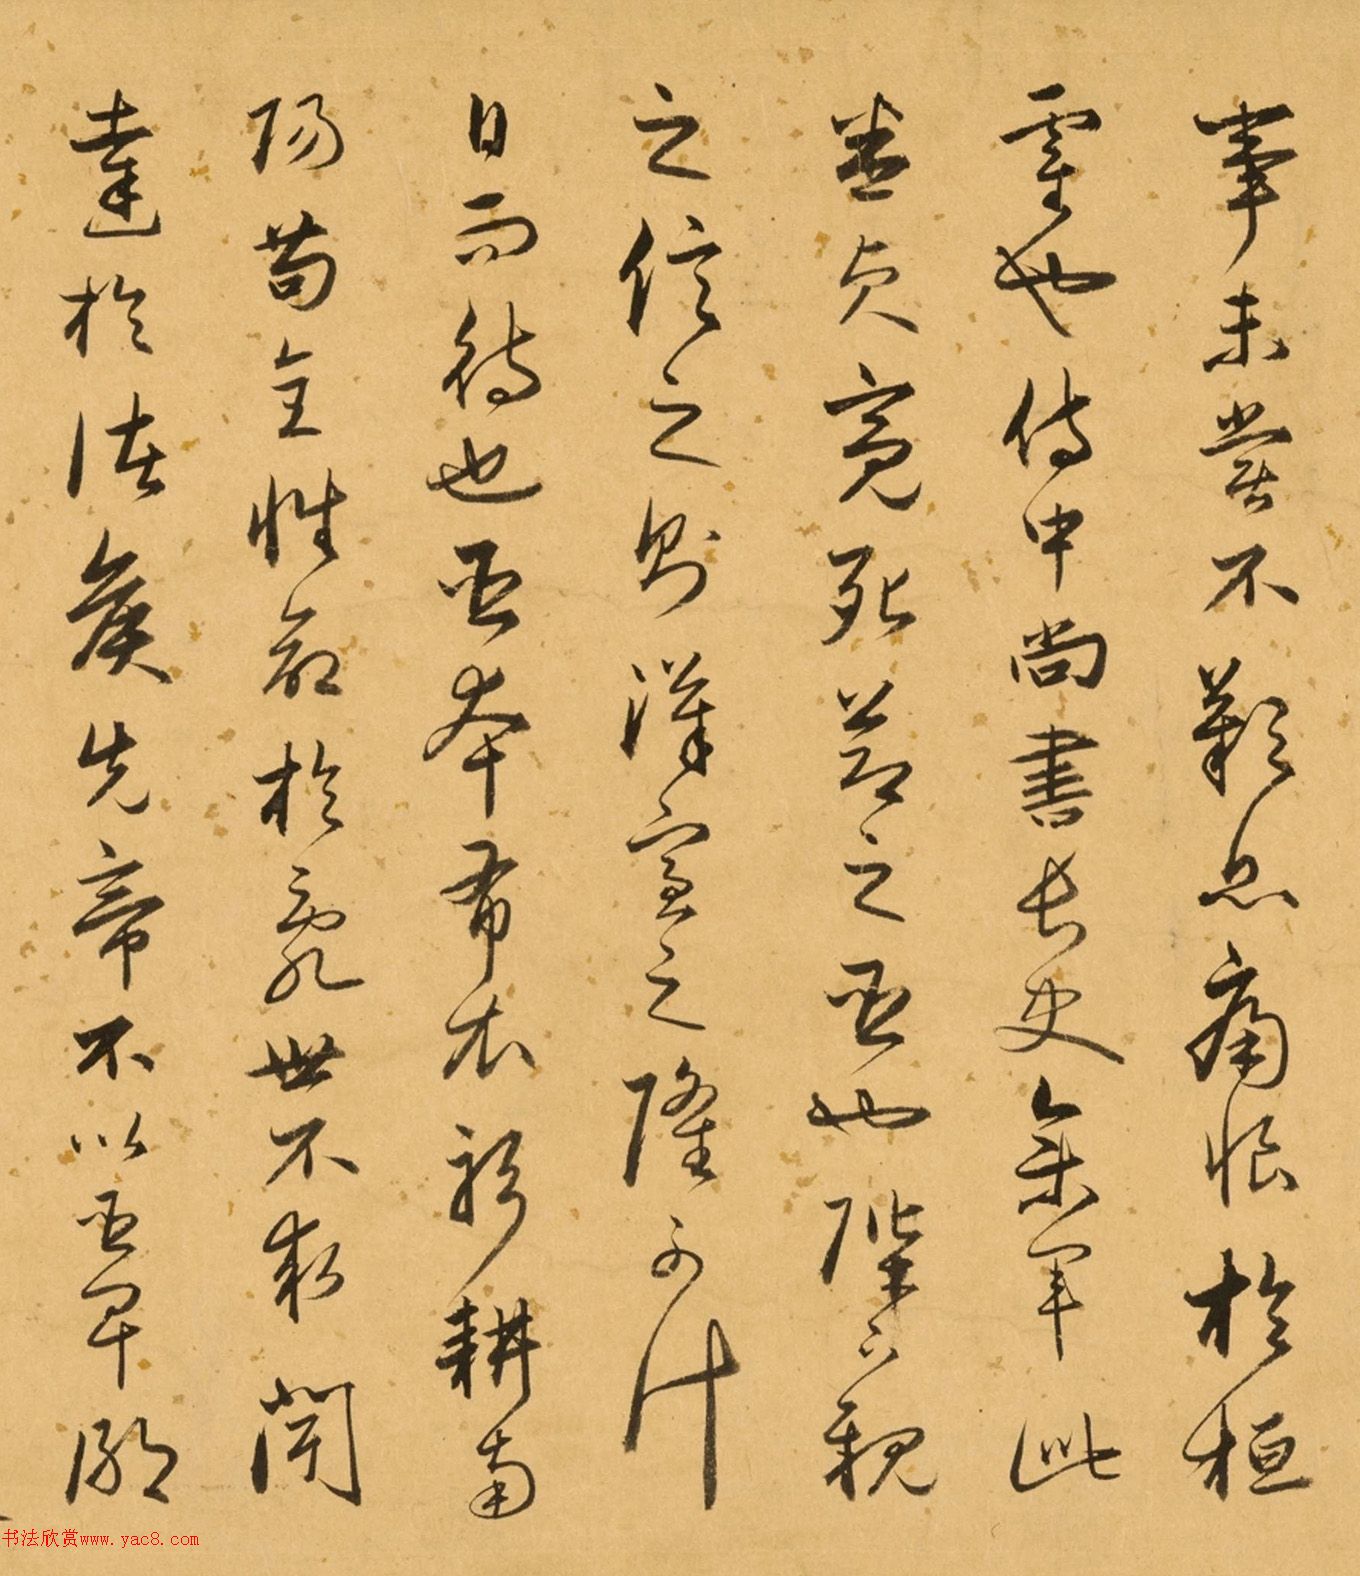 事未嘗不歎息痛恨於桓
靈也侍中尚書長史參軍此
悉貞亮死節之臣也陛下親
之信之則漢室之隆可計
日而待也臣本布衣躬耕南
陽苟全性命於亂世不求聞
達於諸侯先帝不以臣卑鄙
书法欣赏www.yac8.com